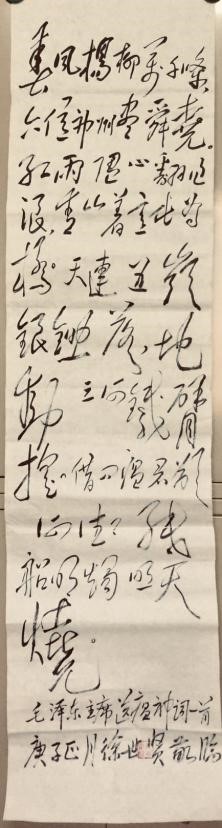 春风楊柳萬千條
六億神州尽舜堯。
红雨随心翻作
浪青山着意化为
橋天連五嶺
銀鋤落地
動三河鐵臂
摇借问瘟君欲
何往纸
船明燭照天
燒。
毛泽东主席送瘟神词一首
庚子正月徐世贤敬临